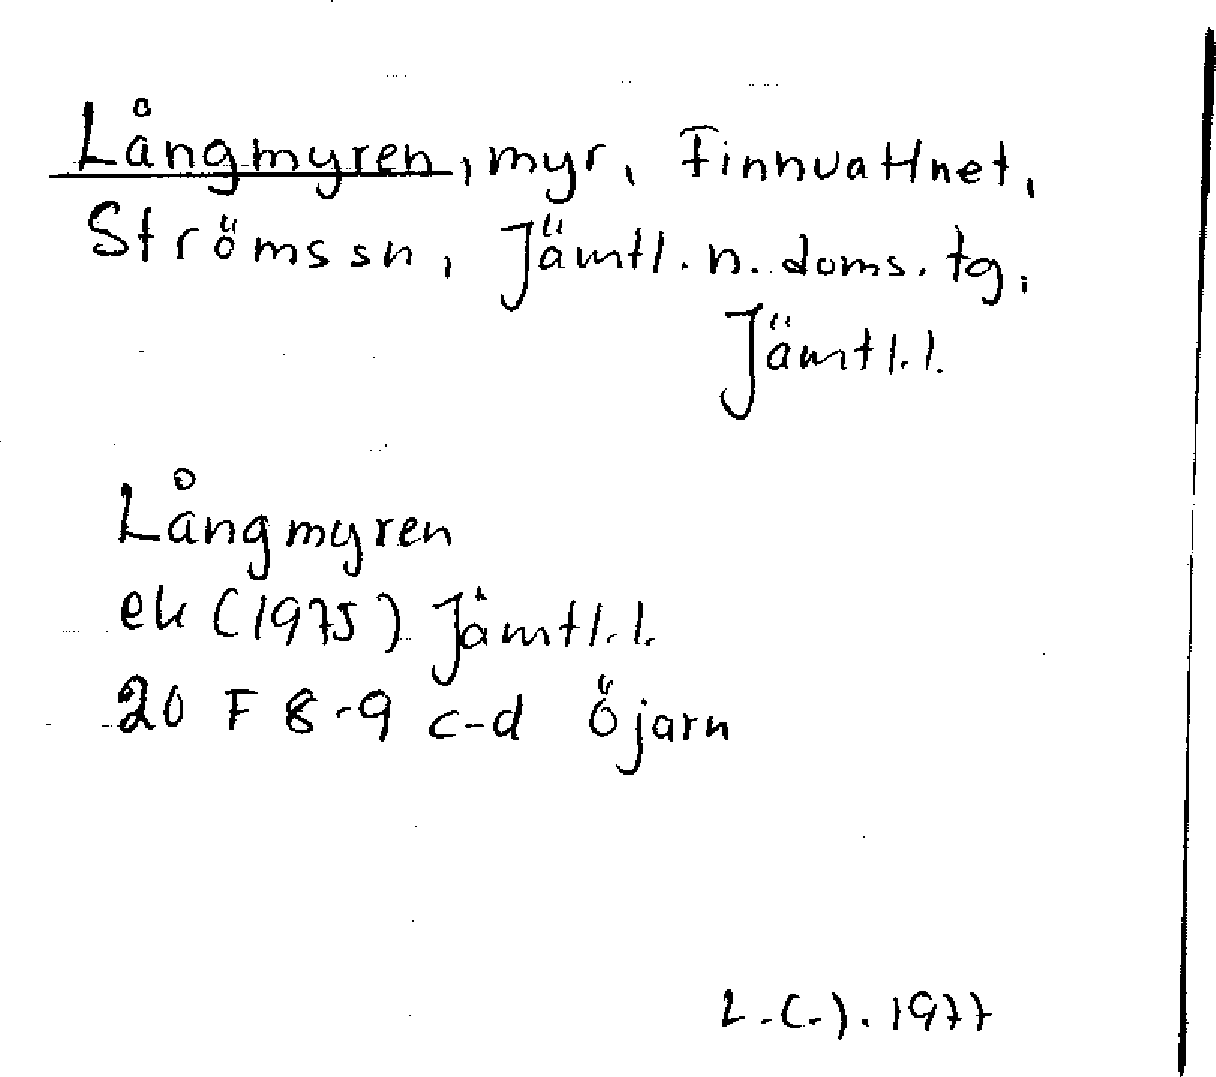 Långmyren, myr, Finnvattnet,
Ströms sn, Jämtl. n. doms. tg,
Jämtl. l.
Långmyren
ek (1975) Jämtl. l.
20 F 8-9 c-d Öjarn
1977